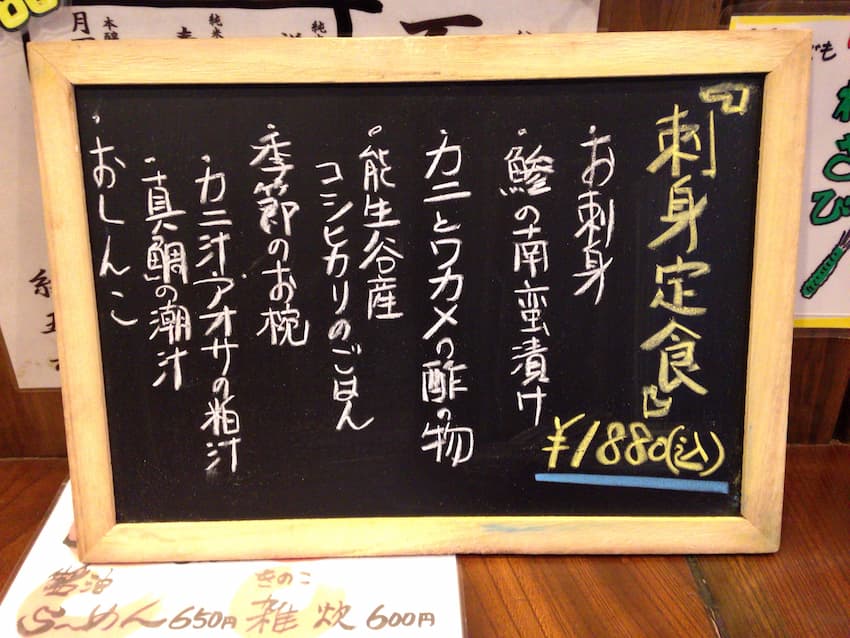 『刺身定食』
¥1880(込)
・お刺身
・鯵の南蛮漬け
・カニとワカメの酢の物
・能生谷産
コシヒカリのごはん
・季節のお椀
・カニ汁アオサの粕汁
・真鯛の潮汁
・おしんこ
醤油
らーめん 650円
きのこ
雑炊 600円
わさび